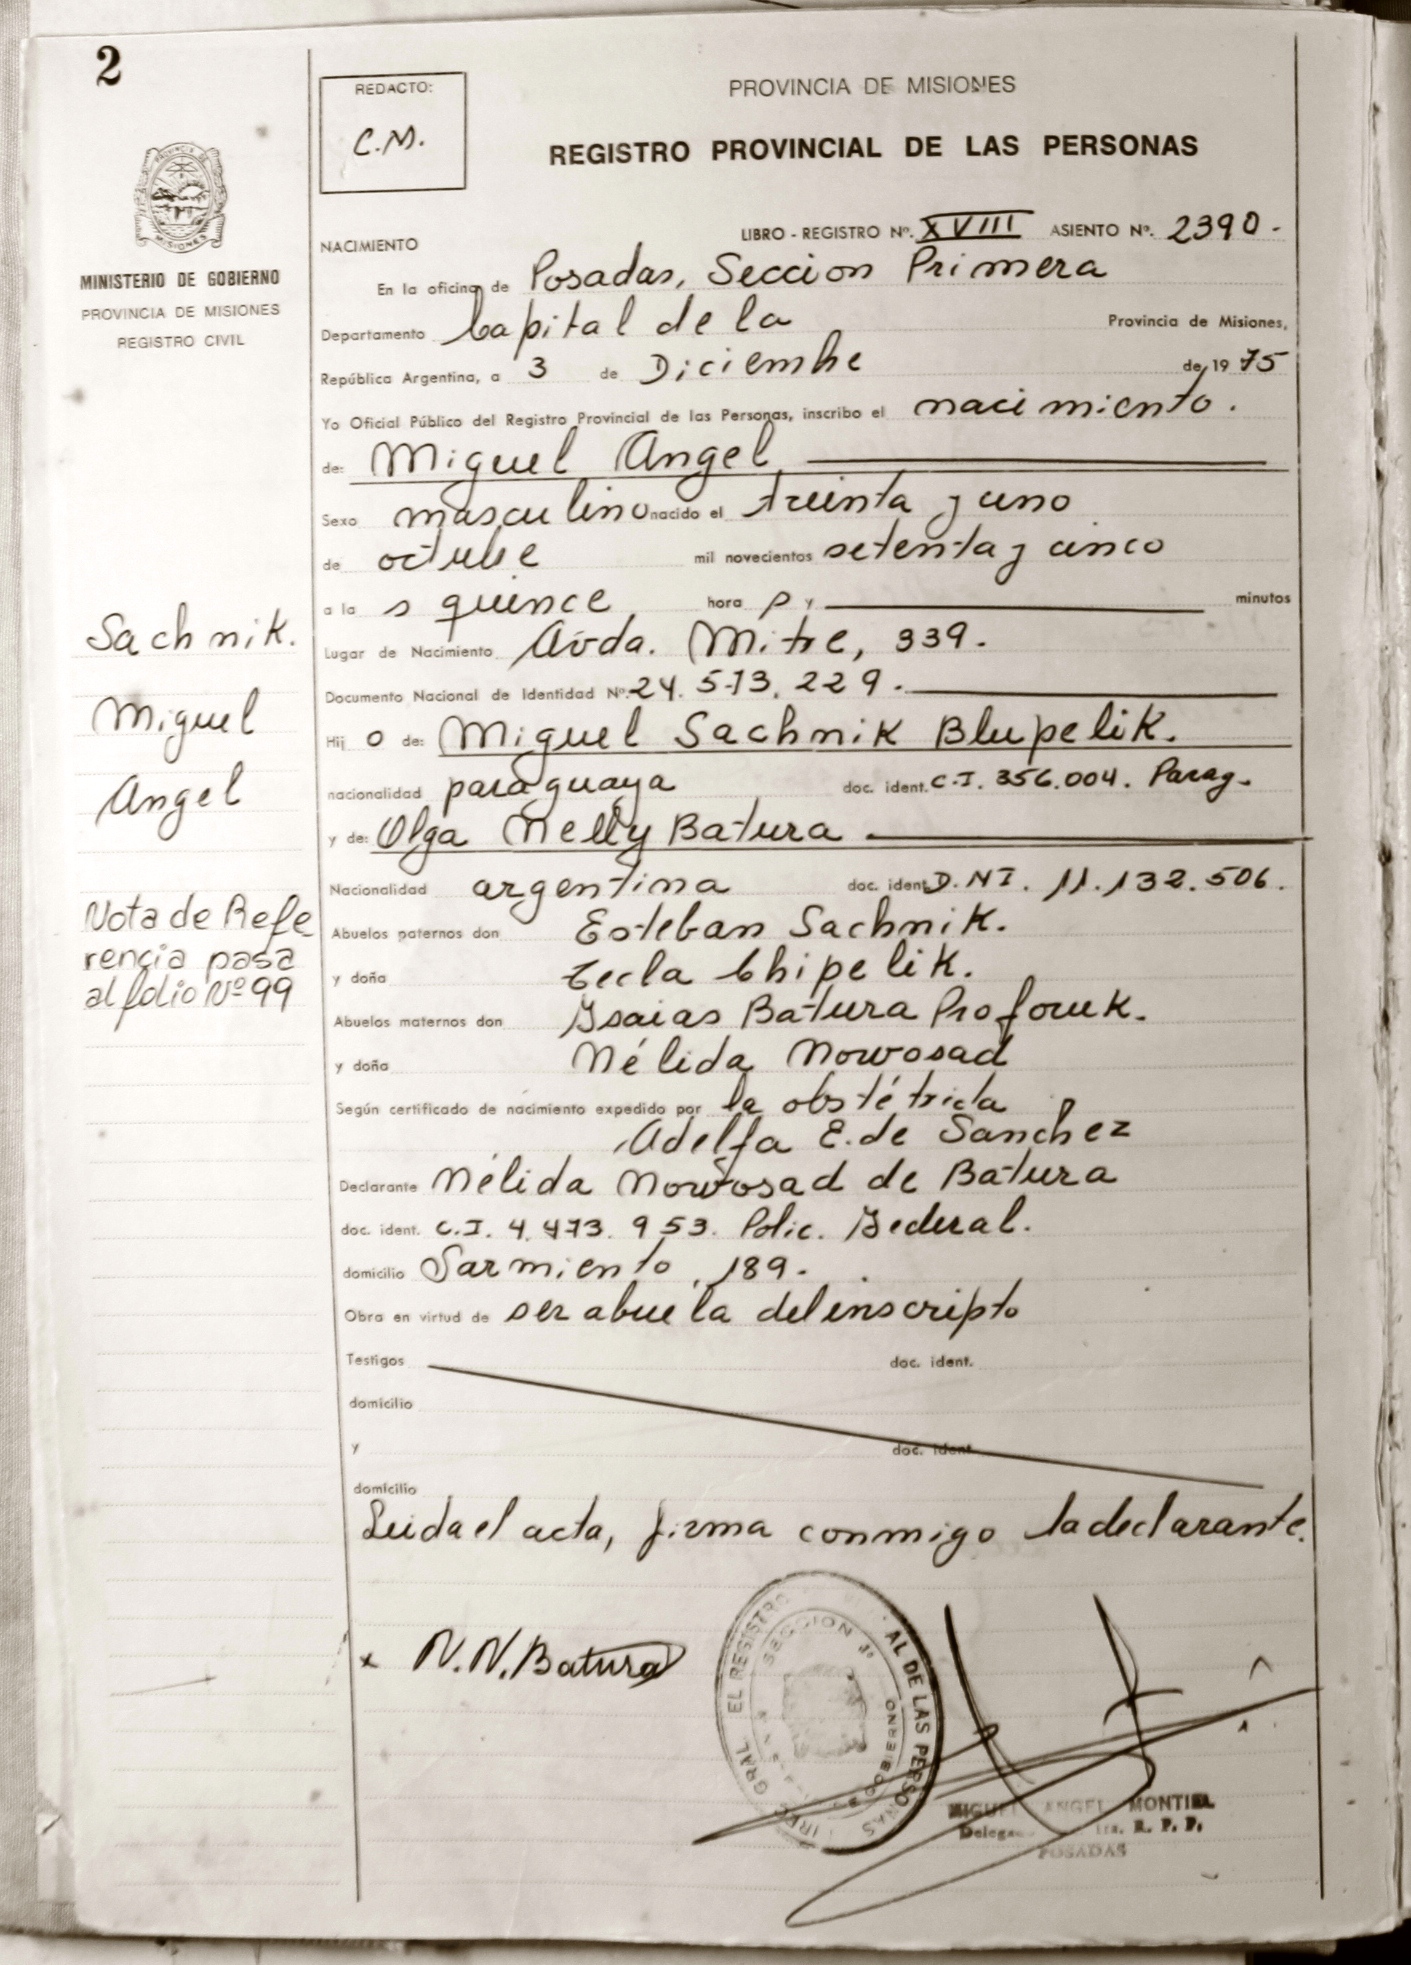 2
REDACTO:
C.M.
PROVINCIA DE MISIONES
REGISTRO PROVINCIAL DE LAS PERSONAS
PROVINCIA DE
MISIONES
MINISTERIO DE GOBIERNO
PROVINCIA DE MISIONES
REGISTRO CIVIL
NACIMIENTO
LIBRO - REGISTRO Nº. XVIII ASIENTO Nº. 2390.-
En la oficina de Posadas, Seccion Primera
Departamento Capital de la Provincia de Misiones,
República Argentina, a 3 de Diciembre de 19 75
Yo Oficial Público del Registro Provincial de las Personas, inscribo el nacimiento.
de: Miguel Angel
Sexo masculino nacido el treinta y uno
de octubre mil novecientos setenta y cinco
a la s quince hora s y minutos
Lugar de Nacimiento Avda. Mitre, 339.
Documento Nacional de Identidad Nº. 24.573.229.
Hij o de: Miguel Sachnik Blupelik.
nacionalidad paraguaya doc. ident. C.I. 356.004. Parag.
y de: Olga Nelly Batura
Nacionalidad argentina doc. ident. D.N.I. 11.132.506.
Abuelos paternos don Esteban Sachnik.
y doña Tecla Chipelik.
Abuelos maternos don Isaias Batura
y doña Nélida Nowosad
Según certificado de nacimiento expedido por la obstétrida
Adelfa E. de Sanchez
Declarante Nélida Nowosad de Batura
doc. ident. C.I. 4.473.953. Polic. Federal.
domicilio Sarmiento, 189.
Obra en virtud de ser abuela del inscripto
Testigos doc. ident.
domicilio
y doc. ident.
domicilio
Leida el acta, firma conmigo la declarante.
x N.N. Batura
Sachnik.
Miguel
Angel
Nota de Refe
rencia pasa
al folio Nº 99
GRAL EL REGISTRO AL DE LAS PERSONAS
SECCION 1ª
GOBIERNO
MIGUEL ANGEL MONTIEL
R. P. P.
POSADAS